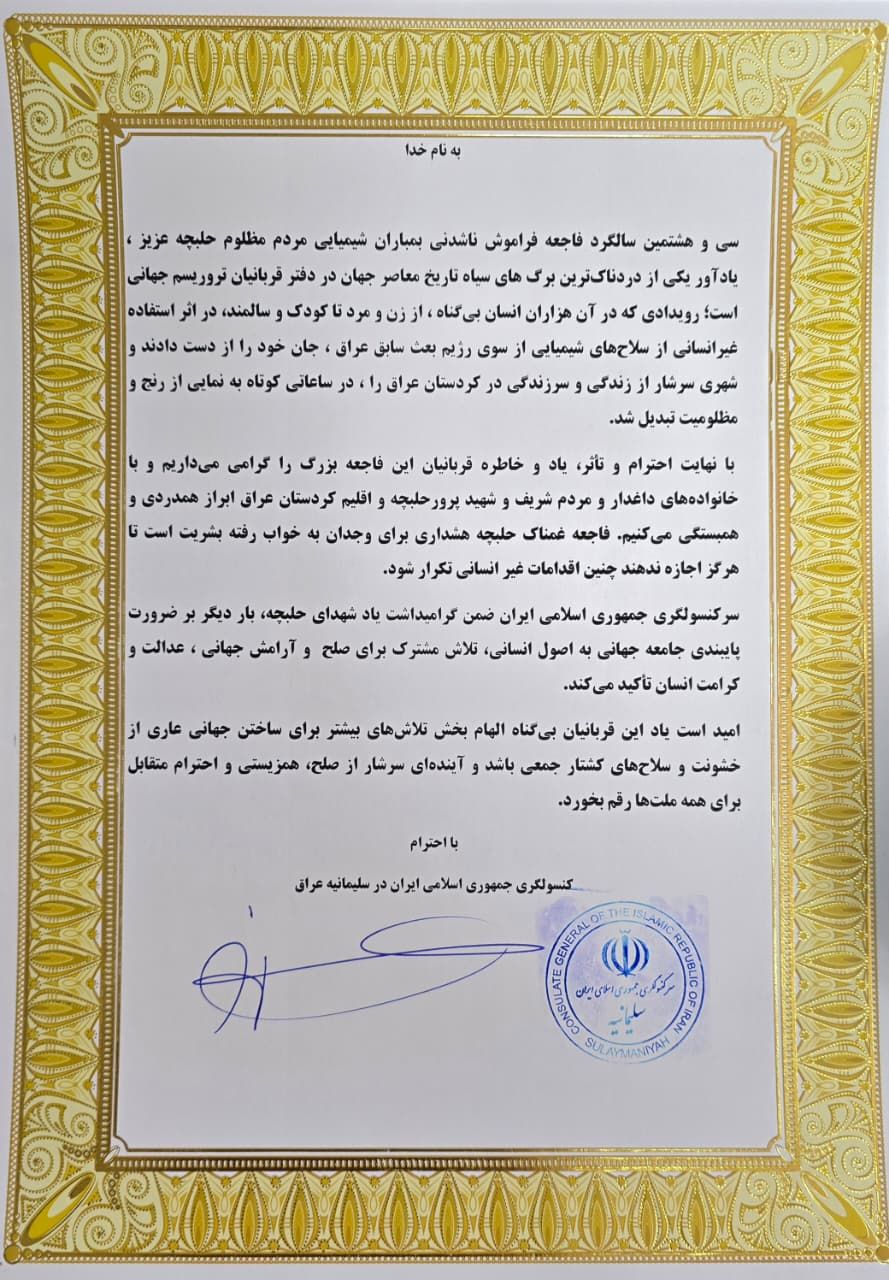 به نام خدا
سی و هشتمین سالگرد فاجعه فراموش ناشدنی بمباران شیمیایی مردم مظلوم حلبچه عزیز ،
یادآور یکی از دردناک‌ترین برگ های سیاه تاریخ معاصر جهان در دفتر قربانیان تروریسم جهانی
است؛ رویدادی که در آن هزاران انسان بی‌گناه ، از زن و مرد تا کودک و سالمند، در اثر استفاده
غیرانسانی از سلاح‌های شیمیایی از سوی رژیم بعث سابق عراق ، جان خود را از دست دادند و
شهری سرشار از زندگی و سرزندگی در کردستان عراق را ، در ساعاتی کوتاه به نمایی از رنج و
مظلومیت تبدیل شد.
با نهایت احترام و تأثر، یاد و خاطره قربانیان این فاجعه بزرگ را گرامی می‌داریم و با
خانواده‌های داغدار و مردم شریف و شهید پرورحلبچه و اقلیم کردستان عراق ابراز همدردی و
همبستگی می‌کنیم. فاجعه غمناک حلبچه هشداری برای وجدان به خواب رفته بشریت است تا
هرگز اجازه ندهند چنین اقدامات غیر انسانی تکرار شود.
سرکنسولگری جمهوری اسلامی ایران ضمن گرامیداشت یاد شهدای حلبچه، بار دیگر بر ضرورت
پایبندی جامعه جهانی به اصول انسانی، تلاش مشترک برای صلح و آرامش جهانی ، عدالت و
کرامت انسان تأکید می‌کند.
امید است یاد این قربانیان بی‌گناه الهام بخش تلاش‌های بیشتر برای ساختن جهانی عاری از
خشونت و سلاح‌های کشتار جمعی باشد و آینده‌ای سرشار از صلح، همزیستی و احترام متقابل
برای همه ملت‌ها رقم بخورد.
با احترام
کنسولگری جمهوری اسلامی ایران در سلیمانیه عراق
CONSULATE GENERAL OF THE ISLAMIC REPUBLIC OF IRAN
سرکنسولگری جمهوری اسلامی ایران
سلیمانیه
SULAYMANIYAH